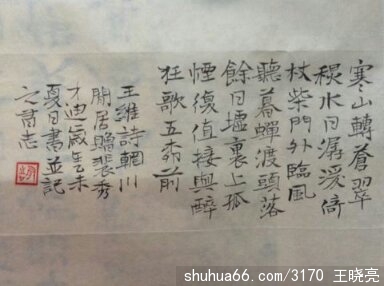 寒山轉蒼翠
穐水日潺湲倚
杖柴門外臨風
聽暮蟬渡頭落
餘日墟裏上孤
煙復值接輿醉
狂歌五桺前
王維詩輞川
閒居贈裴秀
才迪歲乙未
夏日書並記
之志
shuhua66.com/3170 王晓亮